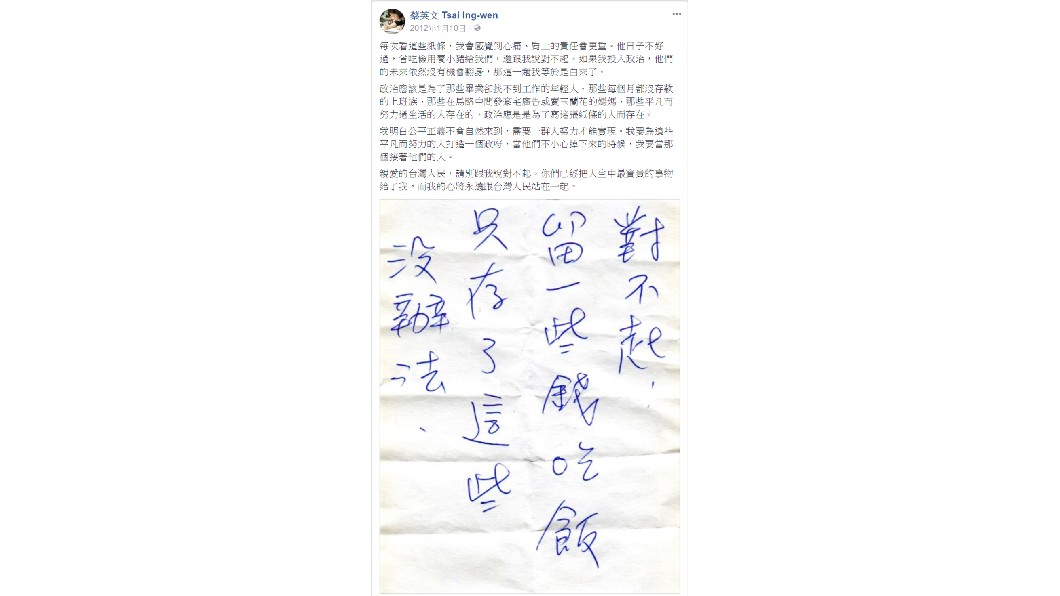 蔡英文 Tsai Ing-wen
2012年1月10日
每次看這些紙條，我會感覺到心痛、肩上的責任會更重。他日子不好
過，省吃儉用養小豬給我們，還跟我說對不起。如果我投入政治，他們
的未來依然沒有機會翻身，那這一趟我等於是白來了。
政治應該是為了那些畢業卻找不到工作的年輕人、那些每個月都沒存款
的上班族、那些在馬路中間發豪宅廣告或賣玉蘭花的媽媽、那些平凡而
努力過生活的人存在的。政治應是是為了寫這張紙條的人而存在。
我明白公平正義不會自然來到，需要一群人努力才能實現。我要為這些
平凡而努力的人打造一個政府，當他們不小心掉下來的時候，我要當那
個接著他們的人。
親愛的台灣人民，請別跟我說對不起。你們已經把人生中最寶貴的事物
給了我，而我的心將永遠跟台灣人民站在一起。
對不起，
留一些錢吃飯
只存了這些
沒辦法、